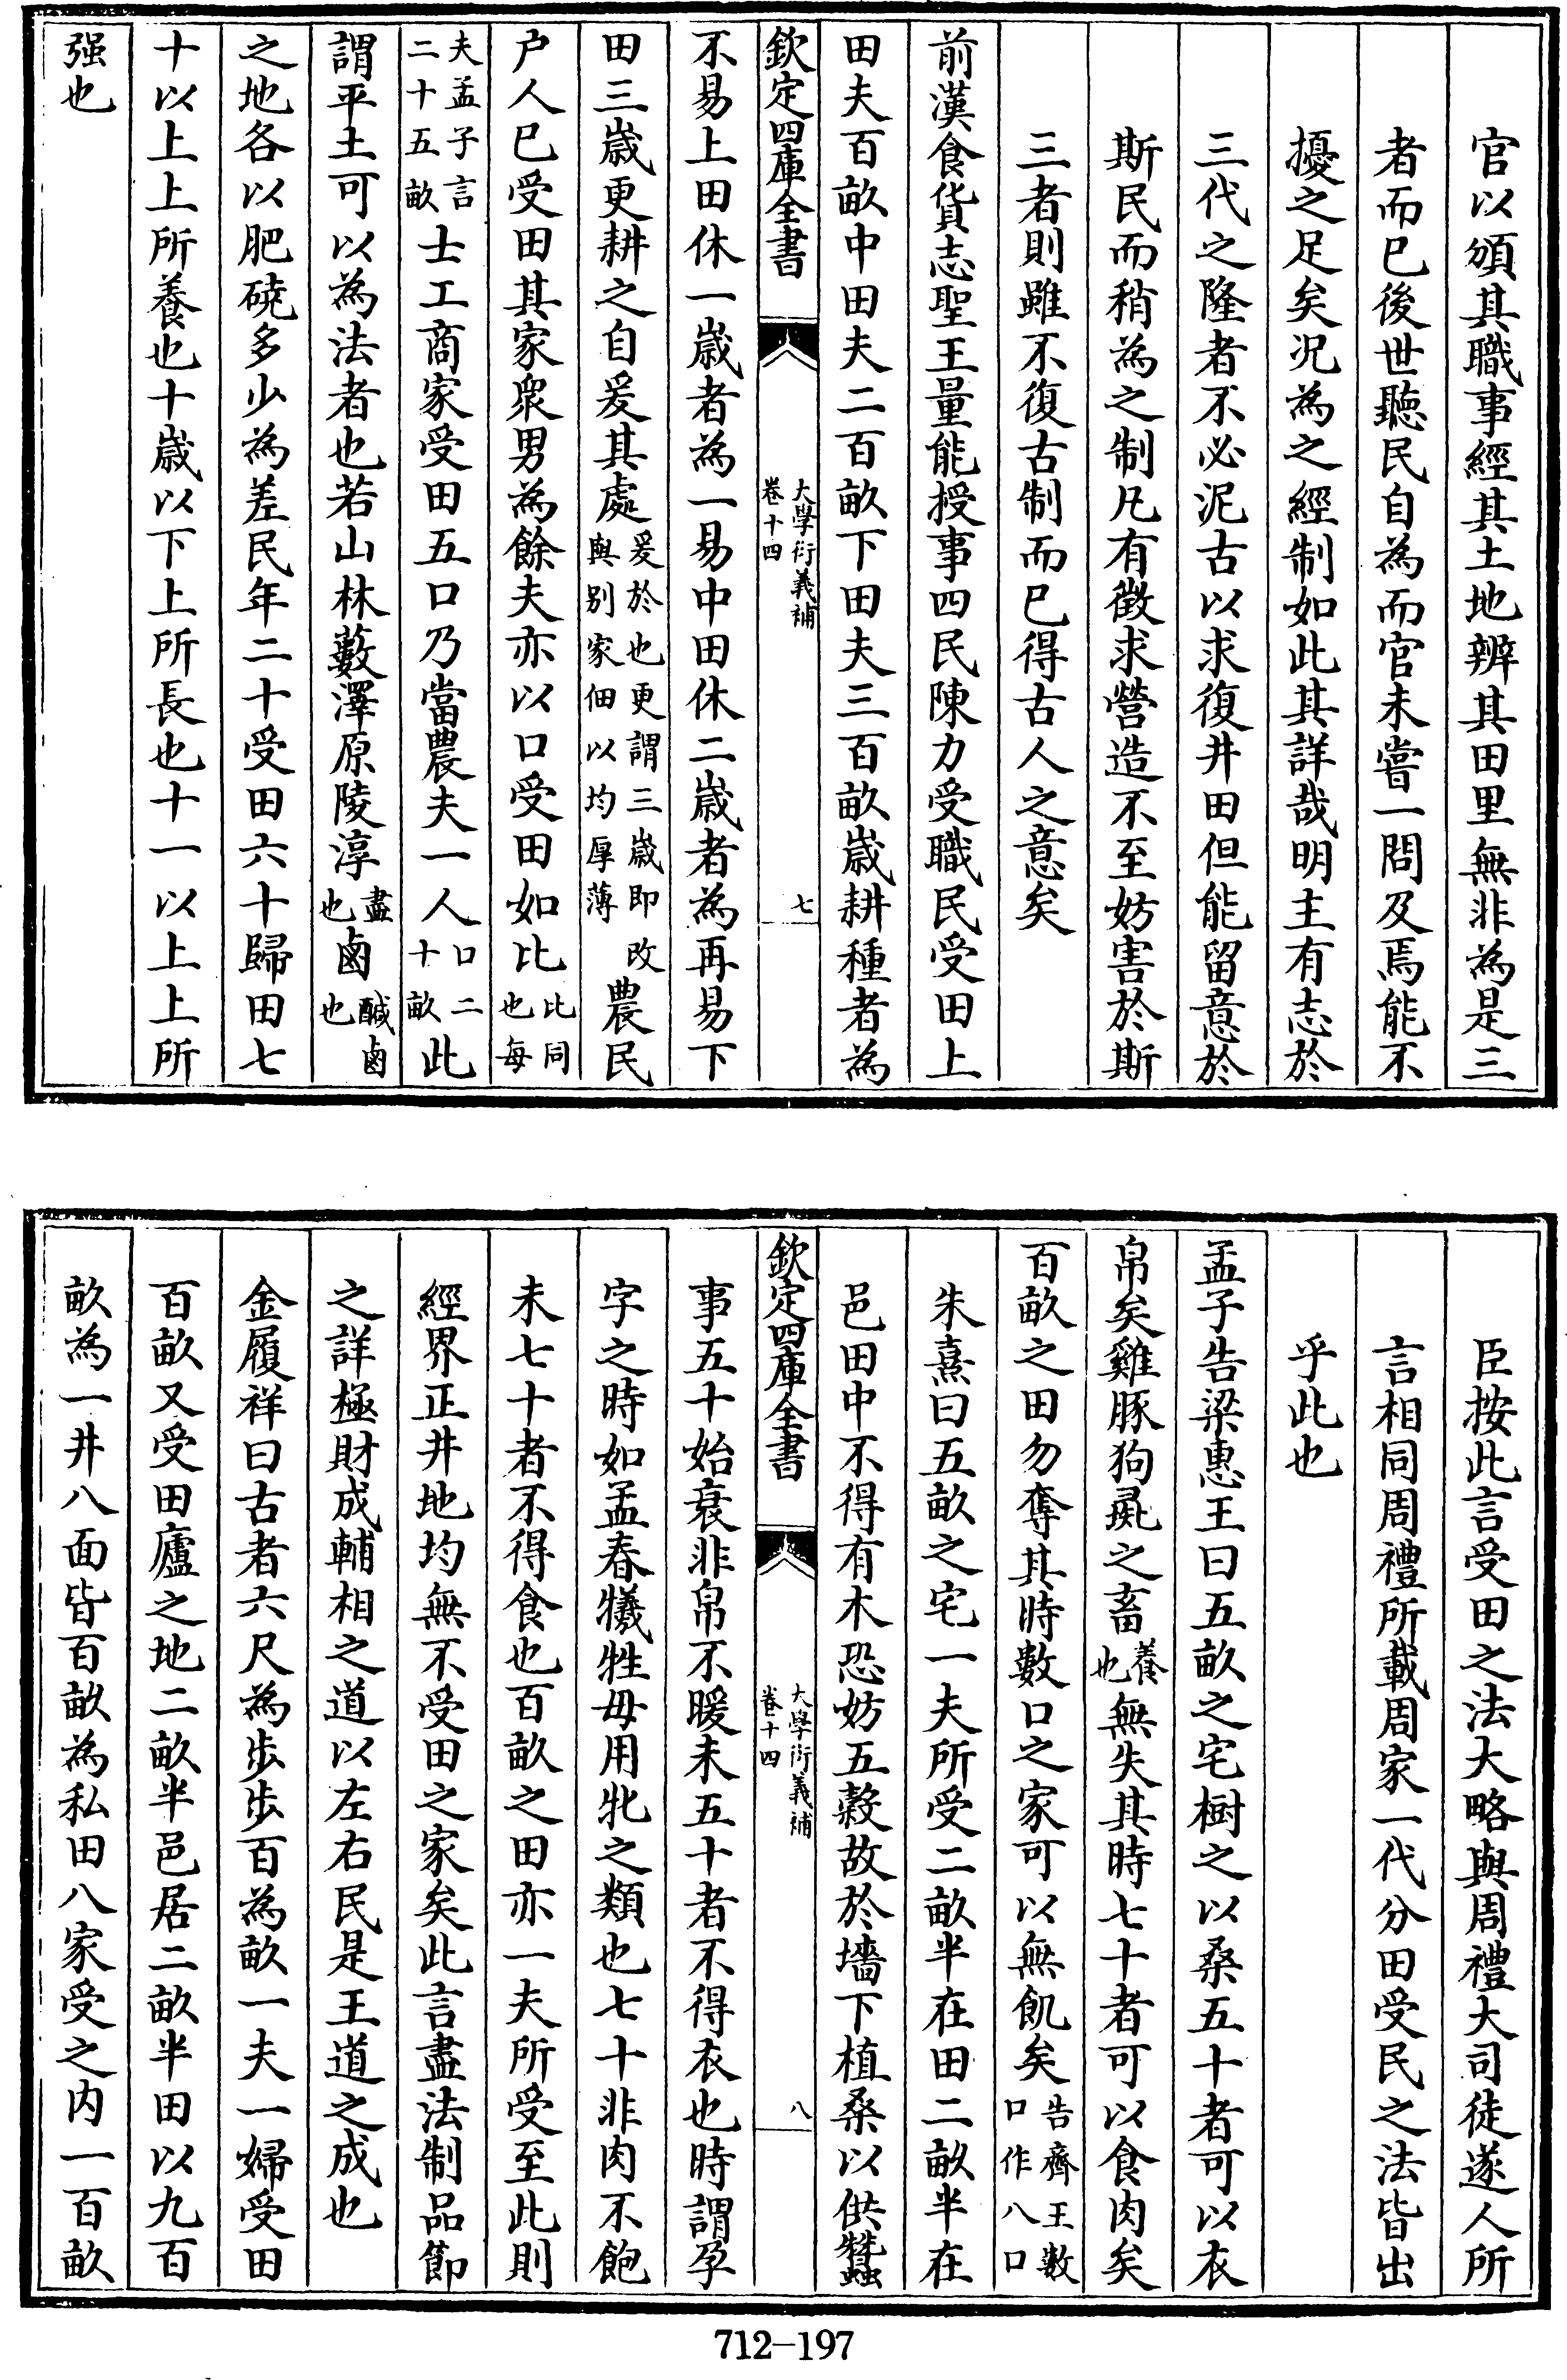 官以頒其職事經其土地辨其田里無非為是三
者而已後世聽民自為而官未嘗一問及焉能不
擾之足矣况為之經制如此其詳哉明主有志於
三代之隆者不必泥古以求復井田但能留意於
斯民而稍為之制凡有徵求營造不至妨害於斯
三者則雖不復古制而已得古人之意矣
前漢食貨志聖王量能授事四民陳力受職民受田上
田夫百畝中田夫二百畝下田夫三百畝歲耕種者為
欽定四庫全書
大學衍義補
卷十四
七
不易上田休一歲者為一易中田休二歲者為再易下
田三歲更耕之自爰其處爰於也更謂三歲即改與别家佃以均厚薄農民
户人已受田其家衆男為餘夫亦以口受田如比比同也每
夫孟子言二十五畝士工商家受田五口乃當農夫一人口二十畝此
謂平土可以為法者也若山林藪澤原陵淳盡也鹵鹹鹵也
之地各以肥磽多少為差民年二十受田六十歸田七
十以上上所養也十歲以下上所長也十一以上上所
强也
臣按此言受田之法大略與周禮大司徒遂人所
言相同周禮所載周家一代分田受民之法皆出
乎此也
孟子告梁惠王曰五畝之宅樹之以桑五十者可以衣
帛矣雞豚狗彘之畜養也無失其時七十者可以食肉矣
百畝之田勿奪其時數口之家可以無飢矣告齊王數口作八口
朱熹曰五畝之宅一夫所受二畝半在田二畝半在
邑田中不得有木恐妨五穀故於墻下植桑以供蠶
欽定四庫全書
大學衍義補
卷十四
八
事五十始衰非帛不暖未五十者不得衣也時謂孕
字之時如孟春犧牲毋用牝之類也七十非肉不飽
未七十者不得食也百畝之田亦一夫所受至此則
經界正井地均無不受田之家矣此言盡法制品節
之詳極財成輔相之道以左右民是王道之成也
金履祥曰古者六尺為步步百為畝一夫一婦受田
百畝又受田廬之地二畝半邑居二畝半田以九百
畝為一井八面皆百畝為私田八家受之内一百畝
712-197